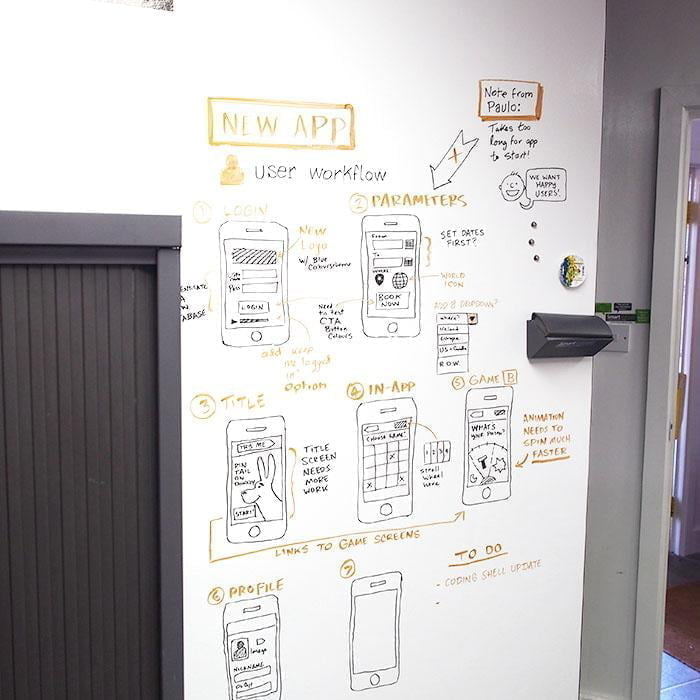 NEW APP
user workflow
Note from
Paulo:
Takes too
long for app
to start!
WE WANT
HAPPY
USERS!
① LOGIN
NEW
LOGO
W/ Blue
Colourscheme
Pass
LOGIN
ABASE
add keep
me logged
in
option
Need
to test
CTA
Button
Colours
② PARAMETERS
From
To
WHERE
BOOK
NOW
SET DATES
FIRST?
WORLD
ICON
ADD A DROPDOWN?
Where?
Ireland
Europe
R.O.W.
③ TITLE
THIS ME
PIN
TAIL
ON
DONKEY
START
TITLE
SCREEN
NEEDS
MORE
WORK
④ IN-APP
CHOOSE NAME!
X
X
X
1 2 3 4
Scroll
Wheel
Here
⑤ GAME B
WHATS
YOUR
ANIMATION
NEEDS TO
SPIN MUCH
FASTER
LINKS TO GAME SCREENS
TO DO
- CODING SHELL UPDATE
-
⑥ PROFILE
Image
NICKNAME
⑦
Smart